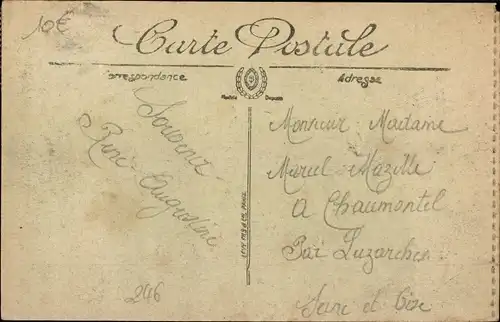 10€
Carte Postale
Correspondance
Adresse
Modèle Déposé
Souvenir
René Augustine
Monsieur Madame
Marcel Mazille
a Chaumontel
Par Luzarches
Seine et Oise
246